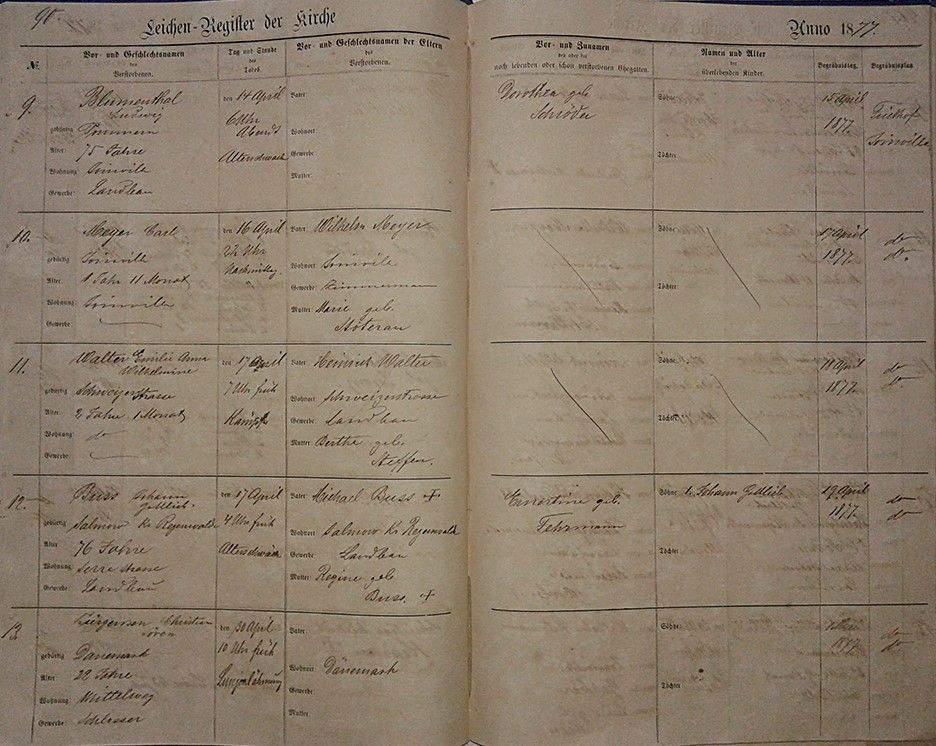 90.
Leichen-Register der Kirche
Anno 1877.
№
Vor- und Geschlechtsnamen
des
Verstorbenen.
Tag und Stunde
des
Todes.
Vor- und Geschlechtsnamen der Eltern
des
Verstorbenen.
Vor- und Zunamen
des oder der
noch lebenden oder schon verstorbenen Ehegatten.
Namen und Alter
der
überlebenden Kinder.
Begräbnistag.
Begräbnisplatz.
9.
Blumenthal
Ludwig
gebürtig Pommern
Alter: 75 Jahre
Wohnung: Joinville
Gewerbe: Landbau
den 14 April
6 Uhr
Abends
Altersschwäche
Vater:
Wohnort:
Gewerbe:
Mutter:
Dorothea geb.
Schröder
Söhne:
Töchter:
15 April
1877.
Friedhof
Joinville
10.
Meyer Carl
gebürtig Joinville
Alter: 1 Jahr 11 Monat
Wohnung: Joinville
Gewerbe:
den 16 April
Uhr
Nachmittag
Vater: Wilhelm Meyer
Wohnort: Joinville
Gewerbe: Zimmermann
Mutter: Marie geb.
Söhne:
Töchter:
17 April
1877.
do
do.
11.
Walter Emilie Anna
Wilhelmine
gebürtig
Alter: 2 Jahre 1 Monat
Wohnung: do
Gewerbe:
den 17 April
7 Uhr früh
Krämpfe
Vater: Heinrich Walter
Wohnort:
Gewerbe: Landbau
Mutter: Berthe geb.
Steffen.
Söhne:
Töchter:
18 April
1877.
do
do
12.
Buss Johann
Gottlieb.
gebürtig Salmow Kr Regenwalde
Alter 76 Jahre
Wohnung: Serrastrasse
Gewerbe: Landbau
den 17 April
4 Uhr früh
Altersschwäche
Vater: Michael Buss +
Wohnort Salmow Kr Regenwald
Gewerbe: Landbau
Mutter: Regine geb.
Buss. +
Ernestine geb.
Fehrmann
Söhne: 1. Johann Gottlieb
Töchter:
19 April
1877.
do
do
13
Jürgensen Christian
Sören
gebürtig Dänemark
Alter: 22 Jahre
Wohnung: Mittelweg
Gewerbe: Schlosser
den 30 April
10 Uhr früh
Lungenlähmung
Vater:
Wohnort Dänemark
Gewerbe:
Mutter:
Söhne:
Töchter:
1 Mai
1877.
do
do